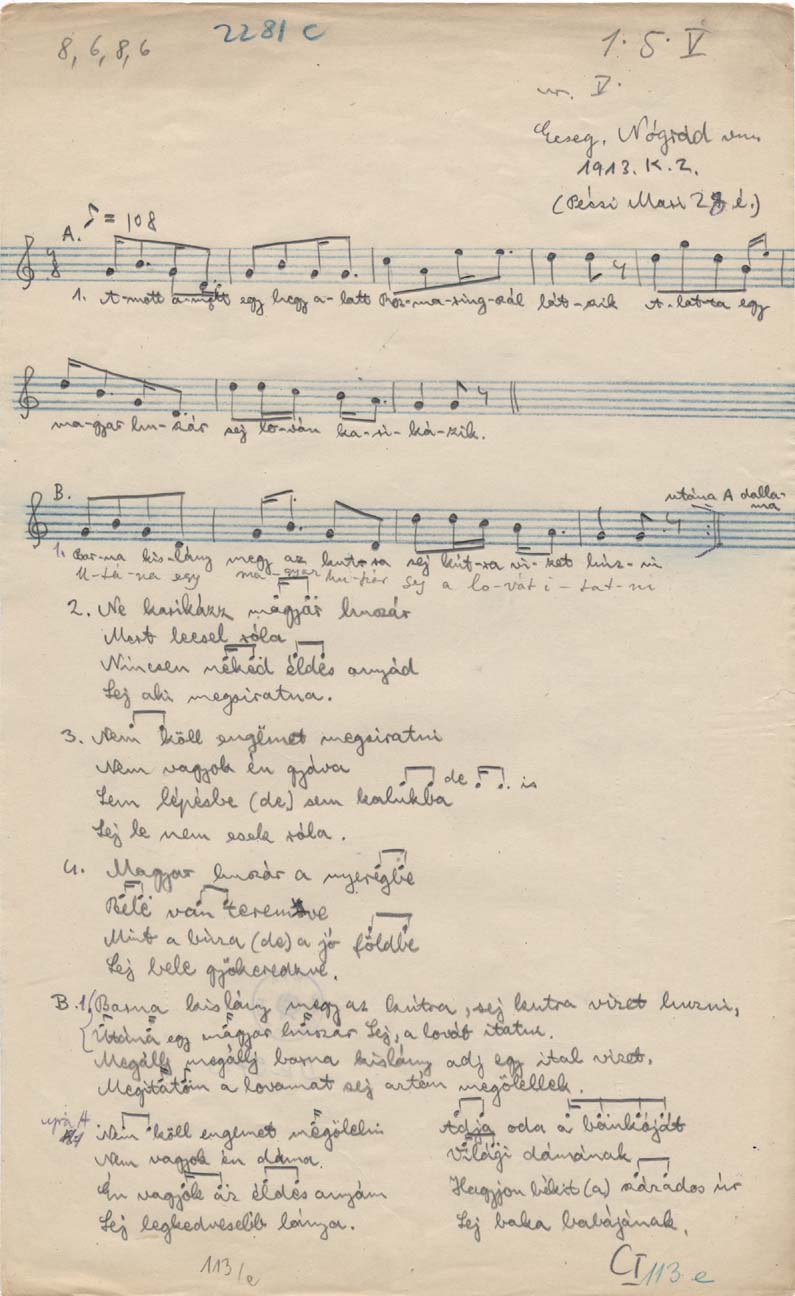 8, 6, 8, 6
2281 c
1. 5. V
ur. V.
Ecseg, Nógrád vm
1913. K. Z.
(Pécsi Mari 28 é.)
♪ = 108
A.
1. A-mott a-mott egy hegy a-latt Roz-ma-ring-szál lát-szik A-lat-ta egy
ma-gyar hu-szár sej lo-ván ka-ri-ká-zik.
B.
utána A dalla-
ma
1. Bar-na kis-lány megy az kut-ra sej kút-ra vi-zet húz-ni
U-tá-na egy ma-gyar hu-szár sej a lo-vát i-tat-ni
2. Ne karikázz magyar huszár
Mert leesel róla
Nincsen néked éldës anyád
Sej aki megsiratna.
3. Nem köll engëmet megsiratni
Nem vagyok én gyáva
Sem lépésbe (de) sem kalukba
de is
Sej le nem esek róla.
4. Magyar huszár a nyeregbe
Belé van teremtve
Mint a búza (de) a jó földbe
Sej bele gyökeredzve.
B. 1. Barna kislány megy az kútra, sej kutra vizet huzni,
Utána egy magyar huszár Sej, a lovát itatni.
Megállj megállj barna kislány adj egy ital vizet,
Megitatom a lovamat sej aztán megölellek.
ujra A
Nem köll engemet megölelni
Nem vagyok én dáma
Én vagyok az éldës anyám
Sej legkedvesebb lánya.
Adja oda a bánkóját
Világi dámának
Hagyjon békit (a) százados úr
Sej baka babájának.
113/e
CI 113 e